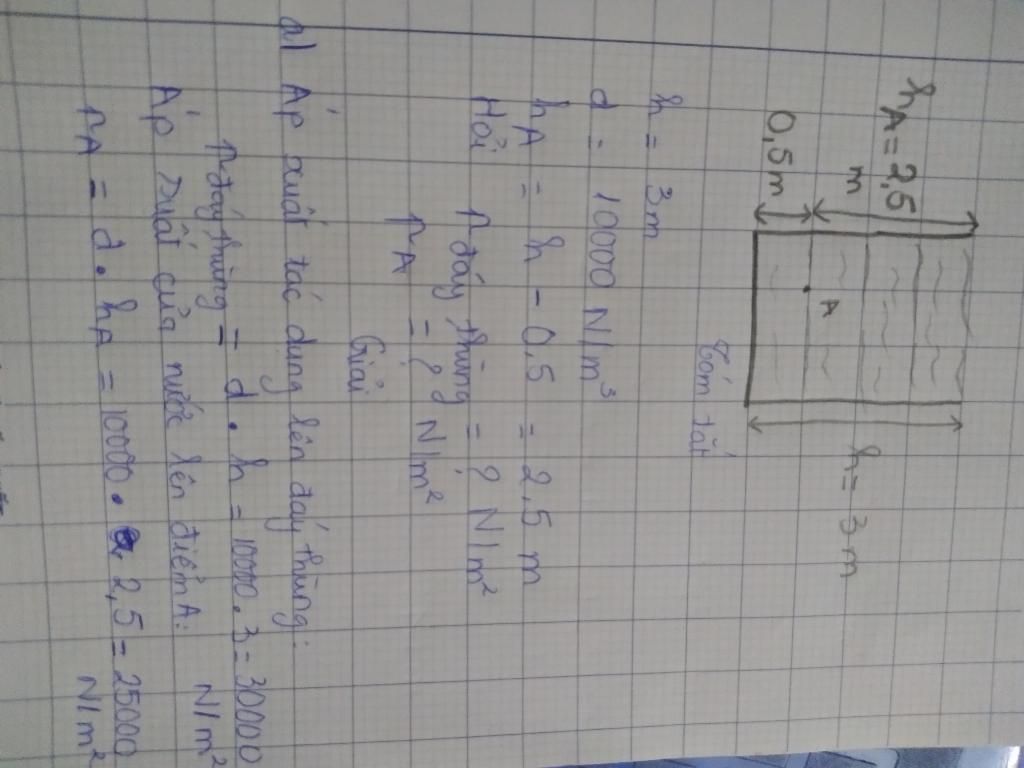 hA = 2,5
m
0,5m
A
h = 3m
Tóm tắt
h = 3m
d = 10000 N/m³
hA = h - 0,5 = 2,5 m
Hỏi p đáy thùng = ? N/m²
pA = ? N/m²
Giải
a) Áp suất tác dụng lên đáy thùng:
p đáy thùng = d . h = 10000 . 3 = 30000
N/m²
Áp suất của nước lên điểm A:
pA = d . hA = 10000 . 2,5 = 25000
N/m²